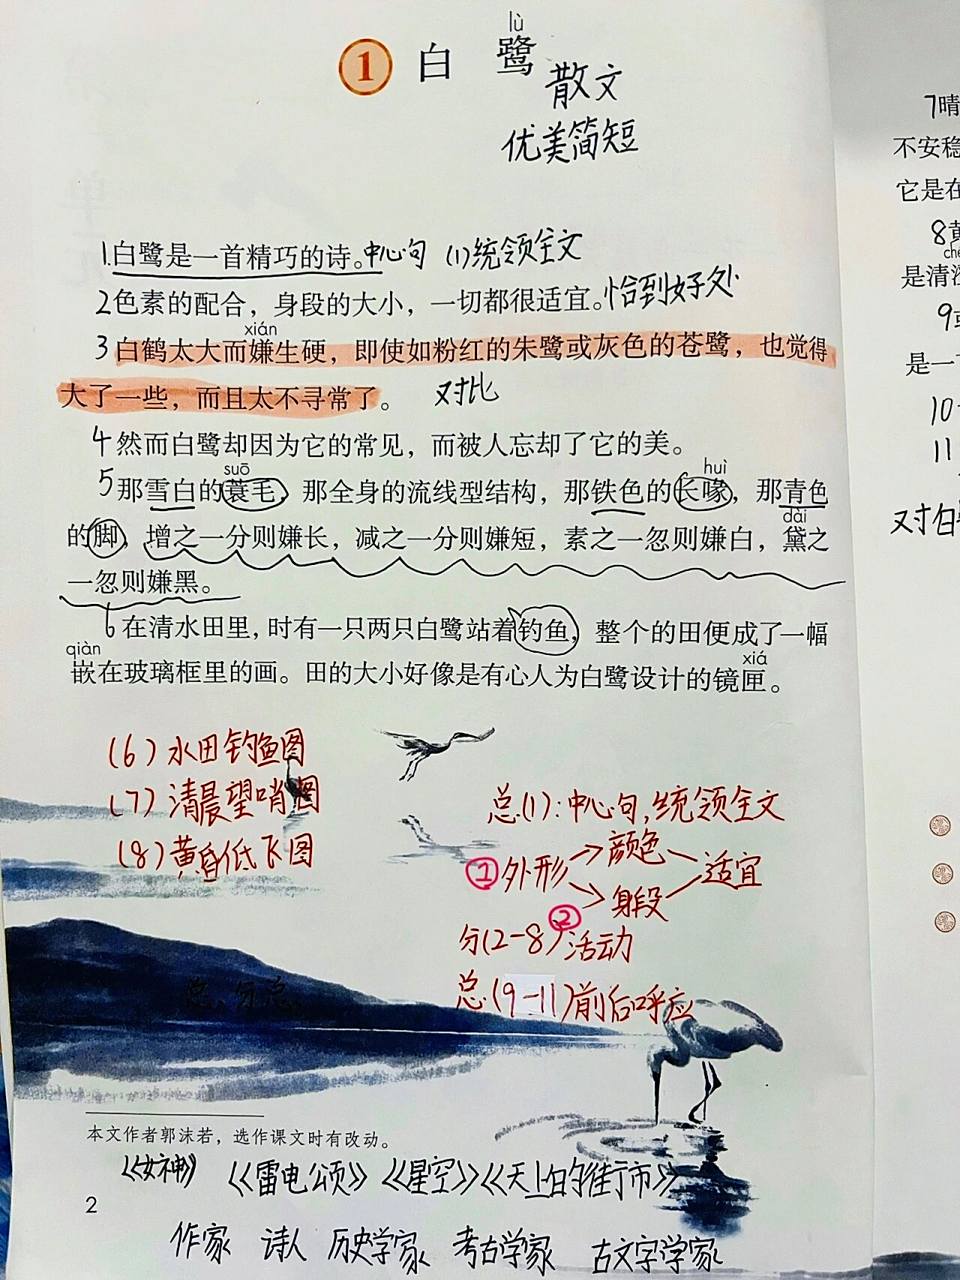 lù
1 白鹭
散文
优美简短
1.白鹭是一首精巧的诗。中心句 (1)统领全文
2色素的配合，身段的大小，一切都很适宜。恰到好处
xián
3白鹤太大而嫌生硬，即使如粉红的朱鹭或灰色的苍鹭，也觉得
大了一些，而且太不寻常了。 对比
4然而白鹭却因为它的常见，而被人忘却了它的美。
suō huì
5那雪白的蓑毛，那全身的流线型结构，那铁色的长喙，那青色
dài
的脚，增之一分则嫌长，减之一分则嫌短，素之一忽则嫌白，黛之
一忽则嫌黑。
6在清水田里，时有一只两只白鹭站着钓鱼，整个的田便成了一幅
qiàn xiá
嵌在玻璃框里的画。田的大小好像是有心人为白鹭设计的镜匣。
(6)水田钓鱼图
(7)清晨望哨图
(8)黄昏低飞图
总(1):中心句,统领全文
①外形→颜色 适宜
→身段
②
分(2-8)活动
总(9-11)前后呼应
总.分.总.
本文作者郭沫若，选作课文时有改动。
《女神》《雷电颂》《星空》《天上的街市》
2
作家 诗人 历史学家 考古学家 古文字学家
7晴
不安稳
它是在
8黄
是清澄
9或
是一
10
11
对白